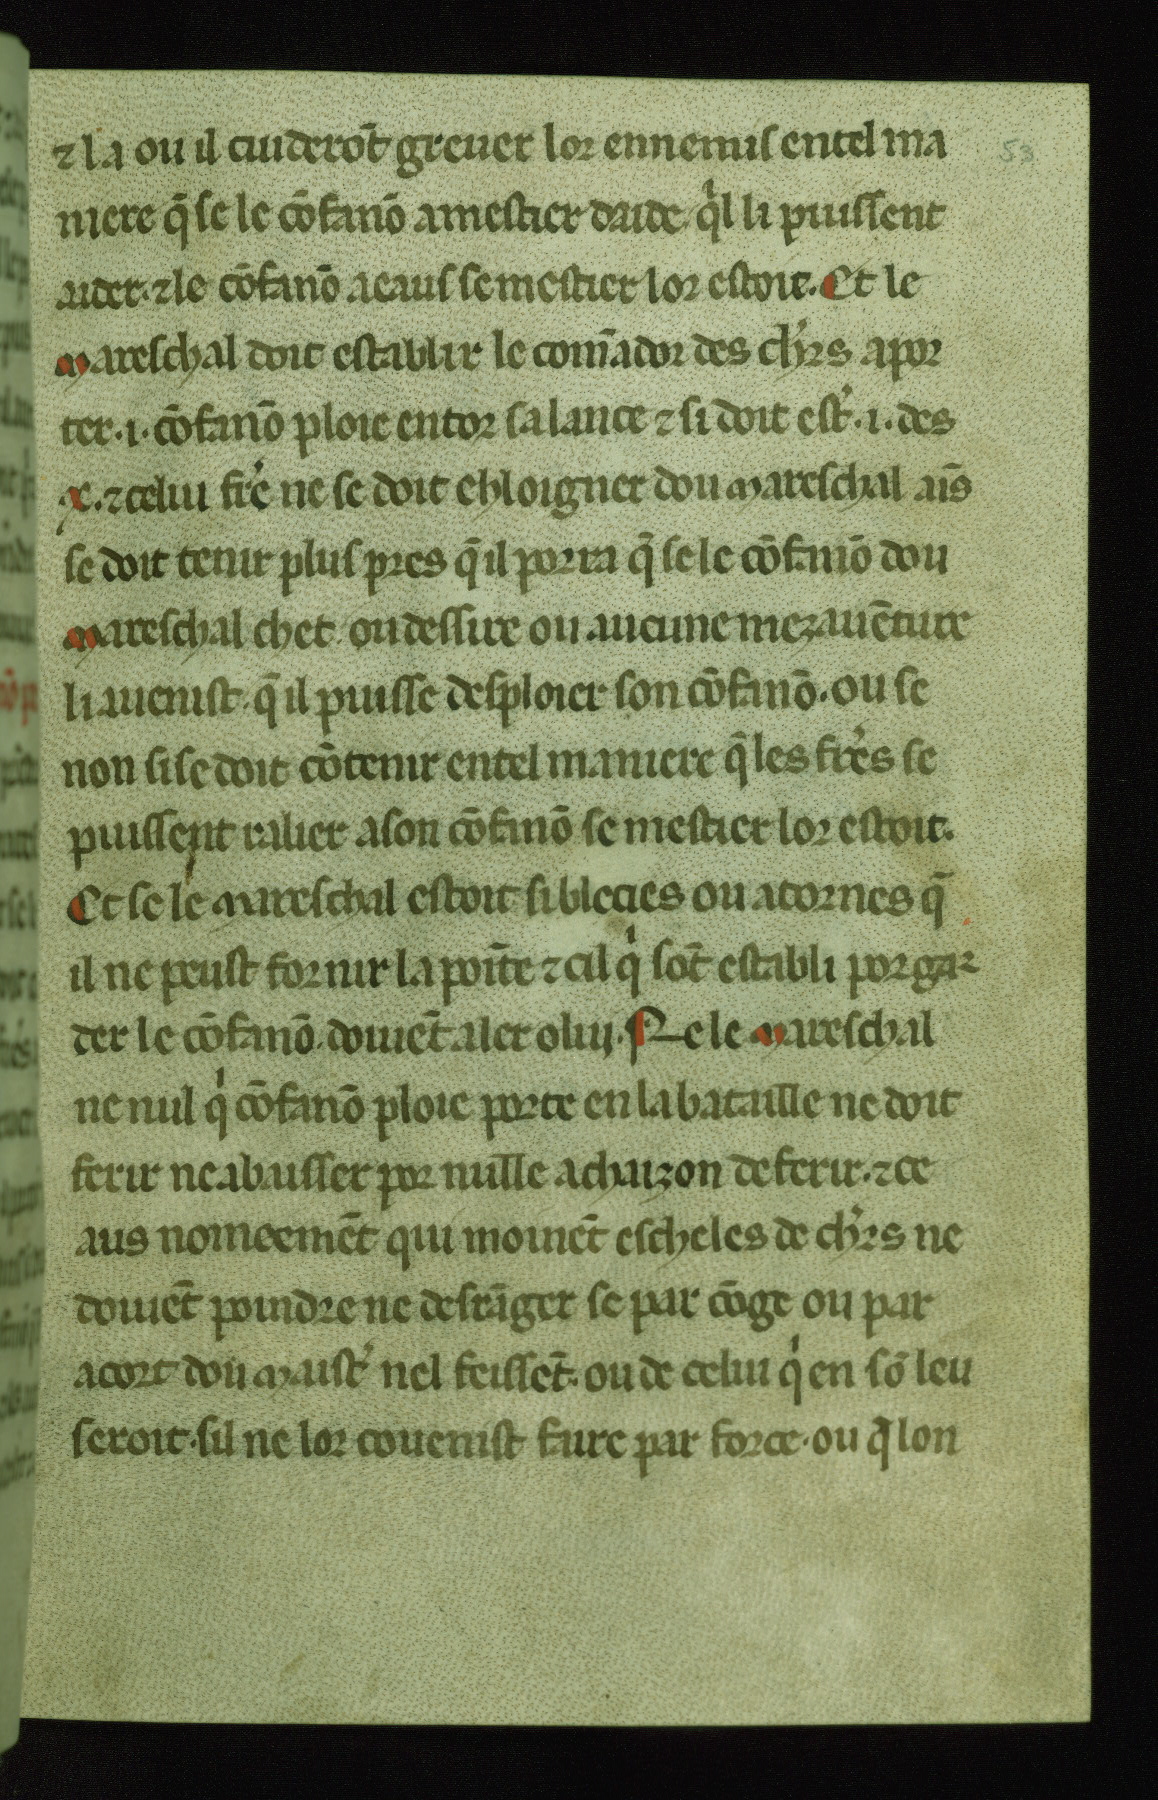 ⁊ la ou il cuiderot̄ greuer lor ennemis en tel ma
niere q̄ se le cōfanō a mestier daide q̍l li puissent
aider ⁊ le cōfanō a eaus se mestier lor estoit. Et le
Mareschal doit establir le com̄ador des ch'rs a por
ter .i. cōfanō ploie entor sa lance ⁊ si doit est' .i. des
x. ⁊ celui fr'e ne se doit ehloigner dou Mareschal ais̄
se doit tenir plus pres q̄ il porra q̄ se le cōfanō dou
Mareschal chet ou dessire ou aucune mezauēture
li auenist. q̄ il puisse desploier son cōfanō. ou se
non si se doit cōtenir en tel maniere q̄ les fr'es se
puissent ralier a son cōfanō se mestier lor estoit.
Et se le Mareschal estoit si blecies ou atornes q̄
il ne peust fornir la poīte ⁊ cil q̍ sot̄ establi por gar
der le cōfanō. doiuet̄ aler o lui. Ne le Mareschal
ne nul q̍ cōfanō ploie porte en la bataille ne doit
ferir ne abaisser por nulle achaizon de ferir. ⁊ ce
aus nomeemēt qui moinet̄ escheles de ch'rs ne
doiuet̄ poindre ne desrāger se par cōge ou par
acort dou Maist' nel feisset̄. ou de celui q̍ en sō leu
seroit. sil ne lor couenist faire par force. ou q̄ lon
53